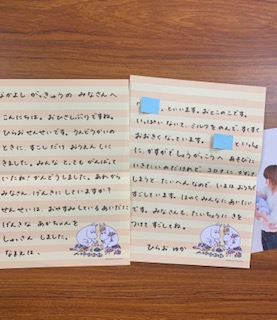 なかよし がっきゅうの みなさんへ
こんにちは。おひさしぶりですね。
ひらおせんせいです。うんどうかいの
ときに、すこしだけ おうえん しに
きました。みんな とっても がんばって
いたね！かんどうしました。あれから
みなさん げんきに していますか？
せんせいは、おやすみしているあいだに
げんきな あかちゃんを
しゅっさん しました。
なまえは、
といいます。おとこのこです。
いっぱい ないて、ミルクをのんで、すくすく
おおきく なっています。
といっしょ
に、かすがで しょうがっこうへ あそびに
いきたいのだけれど、コロナに かかって
しまうと たいへんなので、いまは おうちで
すごしています。はやく みんなに あいたい
です。みなさんも、たいちょうに きを
つけて すごしてね。
ひらお ゆか